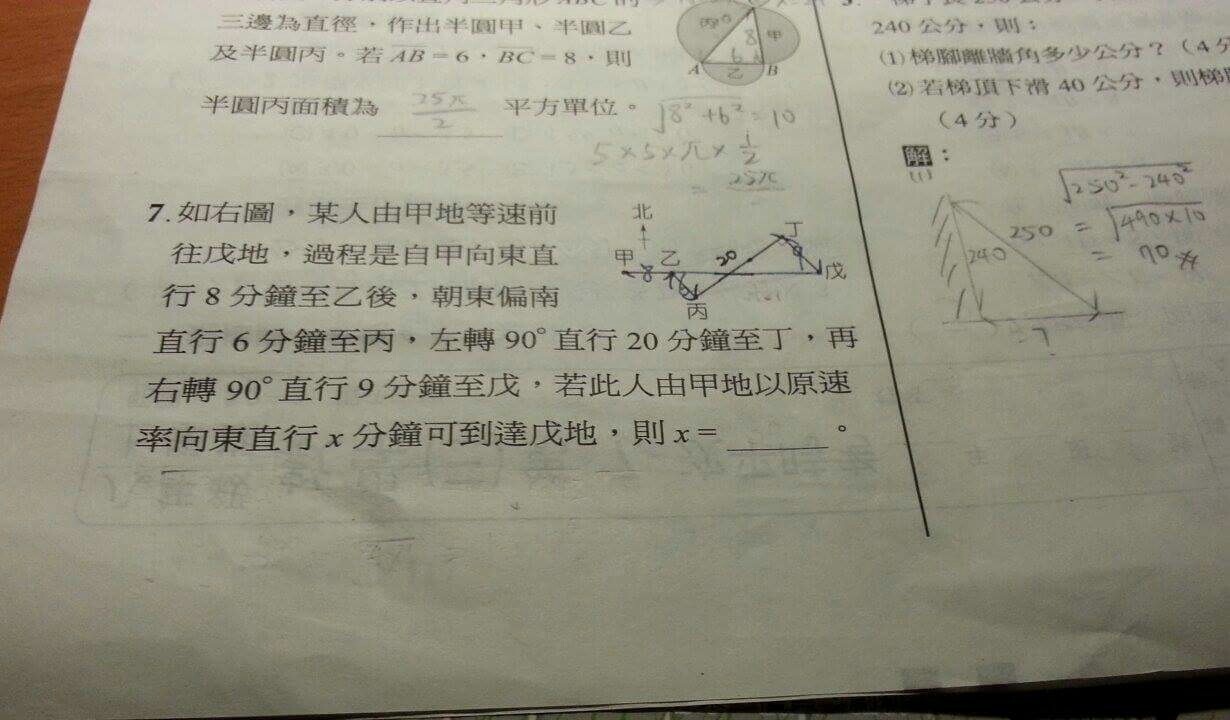 三邊為直徑，作出半圓甲、半圓乙
及半圓丙。若 AB = 6，BC = 8，則
半圓丙面積為 25π/2 平方單位。
√8²+6² = 10
5×5×π×1/2
= 25π
丙
8
甲
6
A 乙 B
7. 如右圖，某人由甲地等速前
往戊地，過程是自甲向東直
行 8 分鐘至乙後，朝東偏南
直行 6 分鐘至丙，左轉 90° 直行 20 分鐘至丁，再
右轉 90° 直行 9 分鐘至戊，若此人由甲地以原速
率向東直行 x 分鐘可到達戊地，則 x = ______。
北
丁
甲 8 乙 20 9 戊
丙
240 公分，則：
(1) 梯腳離牆角多少公分？（4 分
(2) 若梯頂下滑 40 公分，則梯
（4 分）
解：
(1)
√250²-240²
250 = √490×10
240 = 70